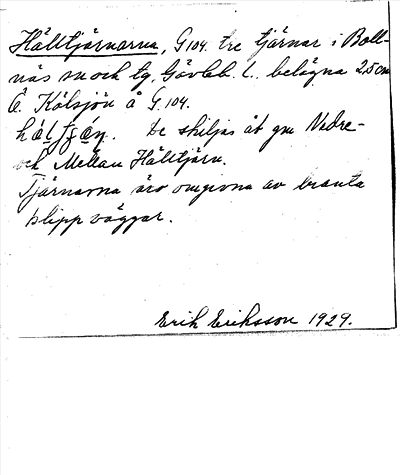 Hälltjärnarna, G 104. tre tjärnar i Boll-
näs sn och tg, Gävleb. L. belägna 2,5 cm
Ö. Kölsjön å G. 104.
De skiljas åt gm Nedre-
och Mellan Hälltjärn.
Tjärnarna äro omgivna av branta
klippväggar.
Erik Eriksson 1929.